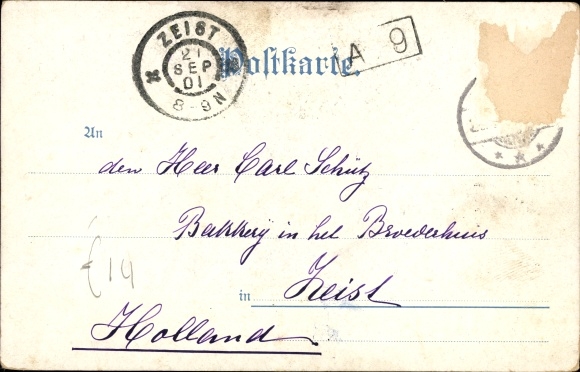 ZEIST
21
SEP
01
8-9N
Postkarte.
A 9
An
den Heer Carl Schütz
Bakkerij in het Broederhuis
£14
in Zeist
Holland.